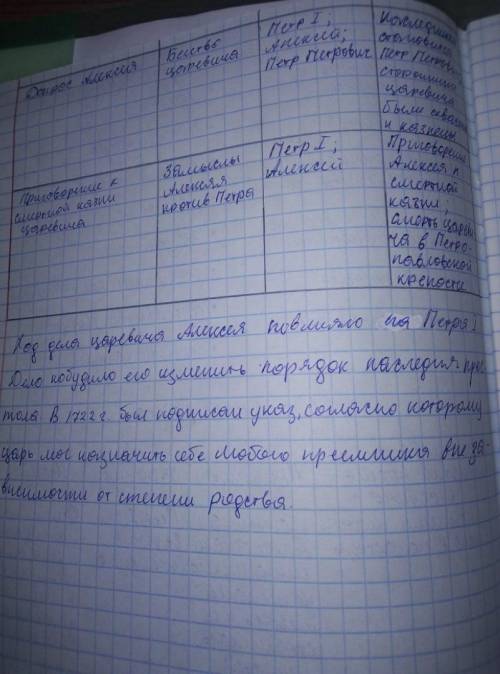 Допрос Алексея
Бегство
царевича
Петр I;
Алексей;
Петр Петрович
Наследником
становится
Петр Петрович
сторонники
царевича
были
и казнены
Приговорение к
смертной казни
царевича
Замыслы
Алексея
против Петра
Петр I;
Алексей
Приговорение
Алексея к
смертной
казни;
смерть цареви
ча в Петро-
павловской
крепости
Ход дела царевича Алексея повлияло на Петра I
Дело побудило его изменить порядок наследия прес
тола В 1722 г. был подписан указ, согласно которому
царь мог назначить себе любого преемника вне за-
висимости от степени родства.